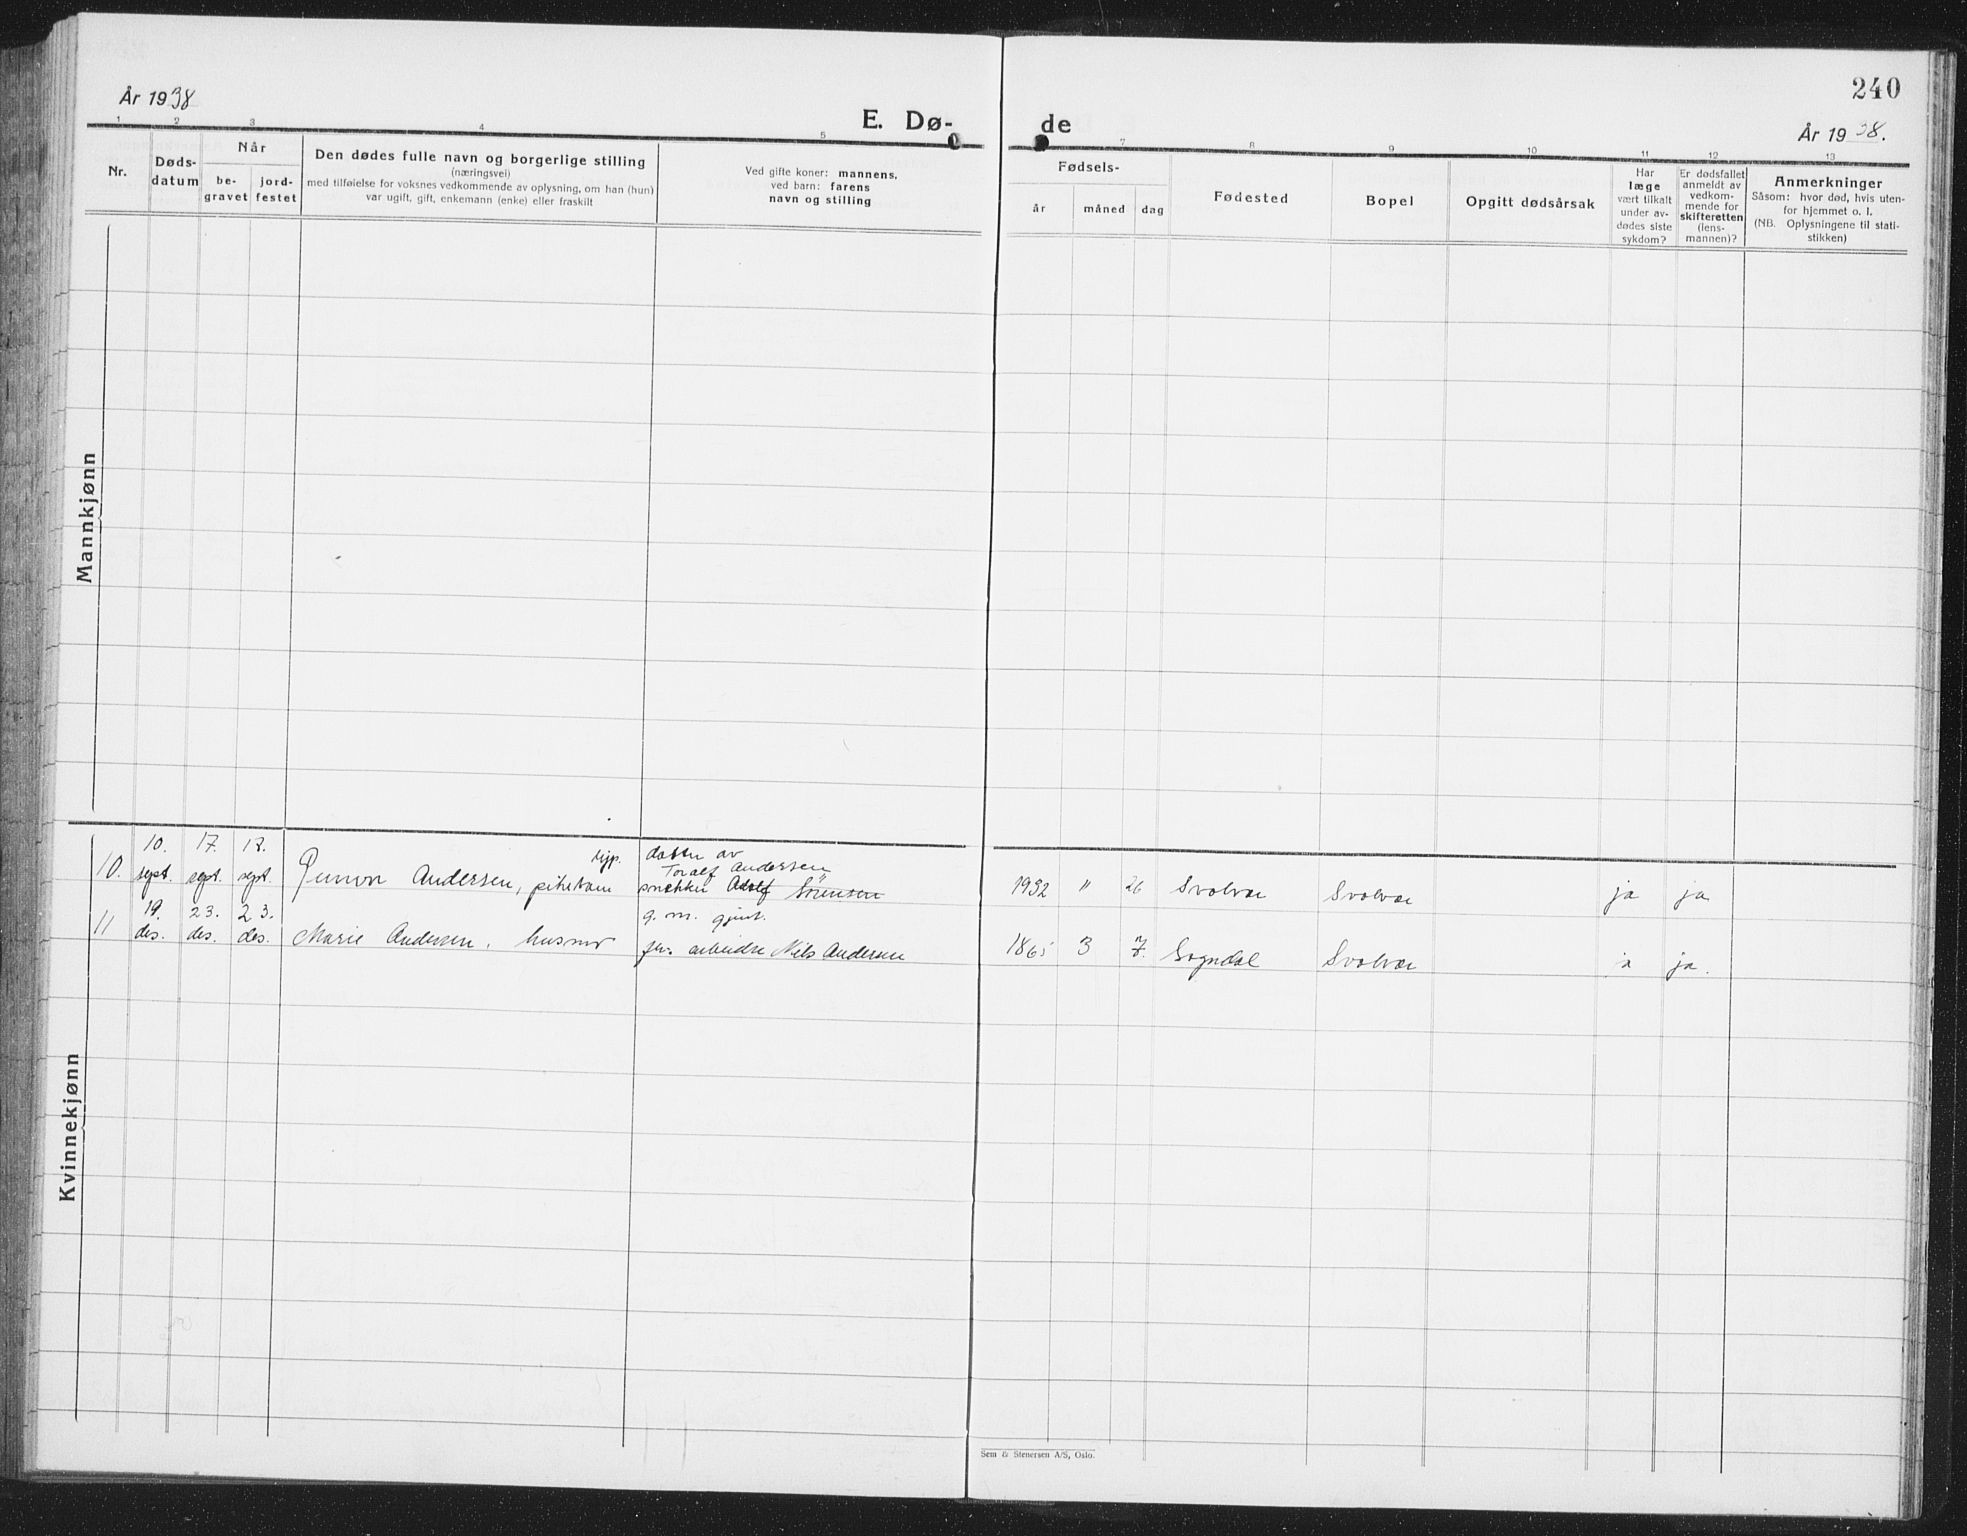 År 1938
E. Dø-
de
240
År 1938.
1 2 3 4 5
7 8 9 10 11 12 13
Nr.
Døds-
datum
Når
be-
gravet
jord-
festet
Den dødes fulle navn og borgerlige stilling
(næringsvei)
med tilføielse for voksnes vedkommende av oplysning, om han (hun)
var ugift, gift, enkemann (enke) eller fraskilt
Ved gifte koner: mannens,
ved barn: farens
navn og stilling
Fødsels-
år måned dag
Fødested
Bopel
Opgitt dødsårsak
Har
læge
vært tilkalt
under av-
dødes siste
sykdom?
Er dødsfallet
anmeldt av
vedkom-
mende for
skifteretten
(lens-
mannen)?
Anmerkninger
Såsom: hvor død, hvis uten-
for hjemmet o. l.
(NB. Oplysningene til stati-
stikken)
Mannkjønn
Kvinnekjønn
10. 10. sept. 17. sept. sept. Andersen, datter av
Toralf Andersen
snekker Adolf Sörensen
1932 " 26 Svolvær Svolvær ja ja
11 19. des. 23. des. 23. des. Marie Andersen, husmor g. m. gjent.
arbeider Nils Andersen
1865 3 7. Sogndal Svolvær ja.
Sem & Stenersen A/S, Oslo.